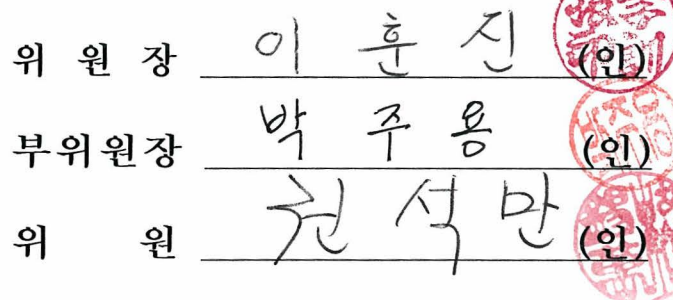 위 원 장 이 훈 진 (인)
부위원장 박 주 용 (인)
위 원 권 석 만 (인)